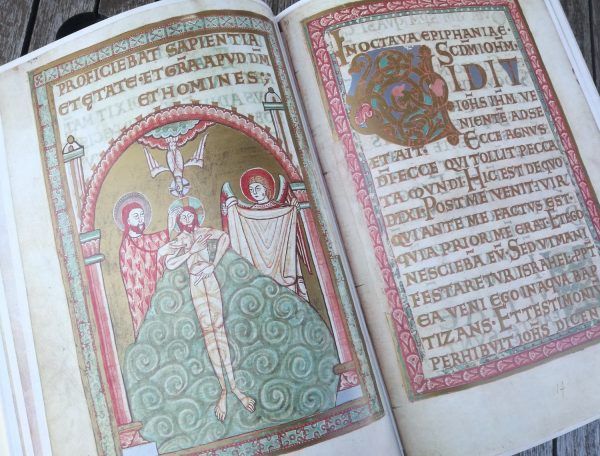 PROFICIEBAT SAPIENTIA
ET ETATE· ET GRA APUD DM
ET HOMINES
IN OCTAVA EPIPHANIAE·
SCDM IOHM·
VIDIT
IOHS IHM VE
NIENTE AD SE
ET AIT· ECCE AGNUS
DI· ECCE QUI TOLLIT PECCA
TA MUNDI· HIC EST DE QUO
DIXI· POST ME VENIT· VIR·
QUI ANTE ME FACTUS EST·
QUIA PRIOR ME ERAT· ET EGO
NESCIEBA EV· SED UT MANI
FESTARETUR ISRAEL· PPT
EA VENI EGO IN AQUA BAP
TIZANS· ET TESTIMONI
PERHIBUIT IOHS DICEN